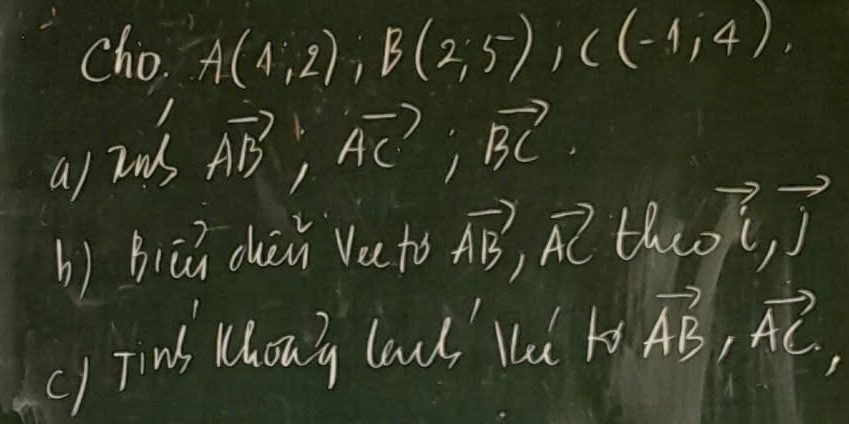 Cho. A(1;2); B(2;5); C(-1;4).
a) Tính \overrightarrow{AB}; \overrightarrow{AC}; \overrightarrow{BC}.
b) Biểu diễn Vectơ \overrightarrow{AB}, \overrightarrow{AC} theo \overrightarrow{i}, \overrightarrow{j}
c) Tính khoảng cách Véc tơ \overrightarrow{AB}, \overrightarrow{AC},